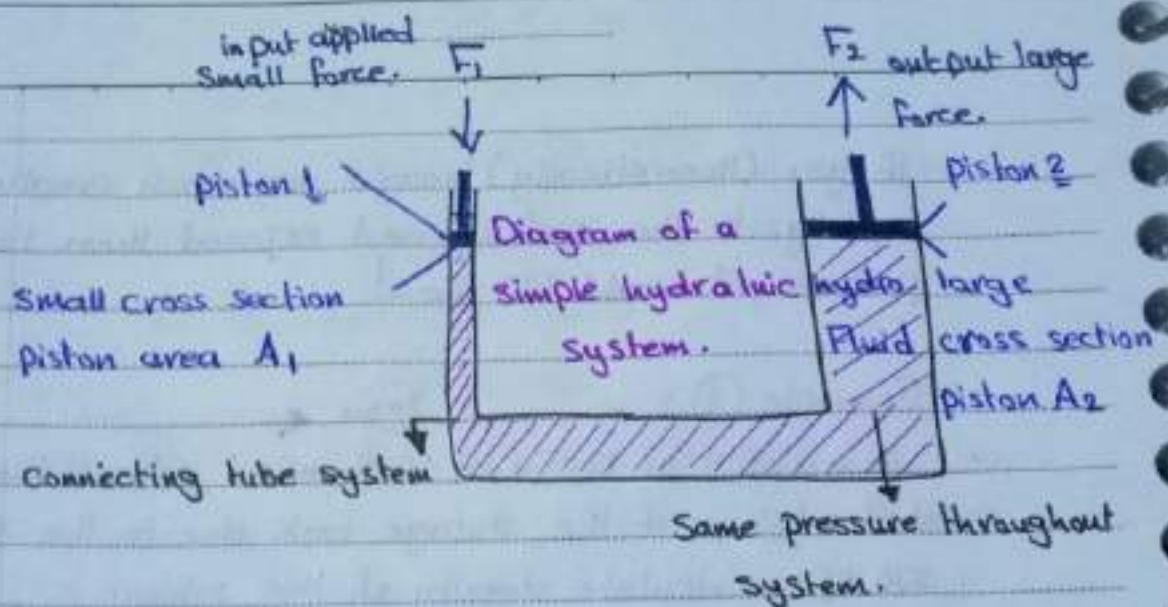 input applied
small force.
F₁
F₂
output large
force.
piston 1
piston 2
Diagram of a
simple hydraluic
system.
small cross section
piston area A₁
hydro
Fluid
large
cross section
piston A₂
connecting tube system
Same pressure throughout
system.